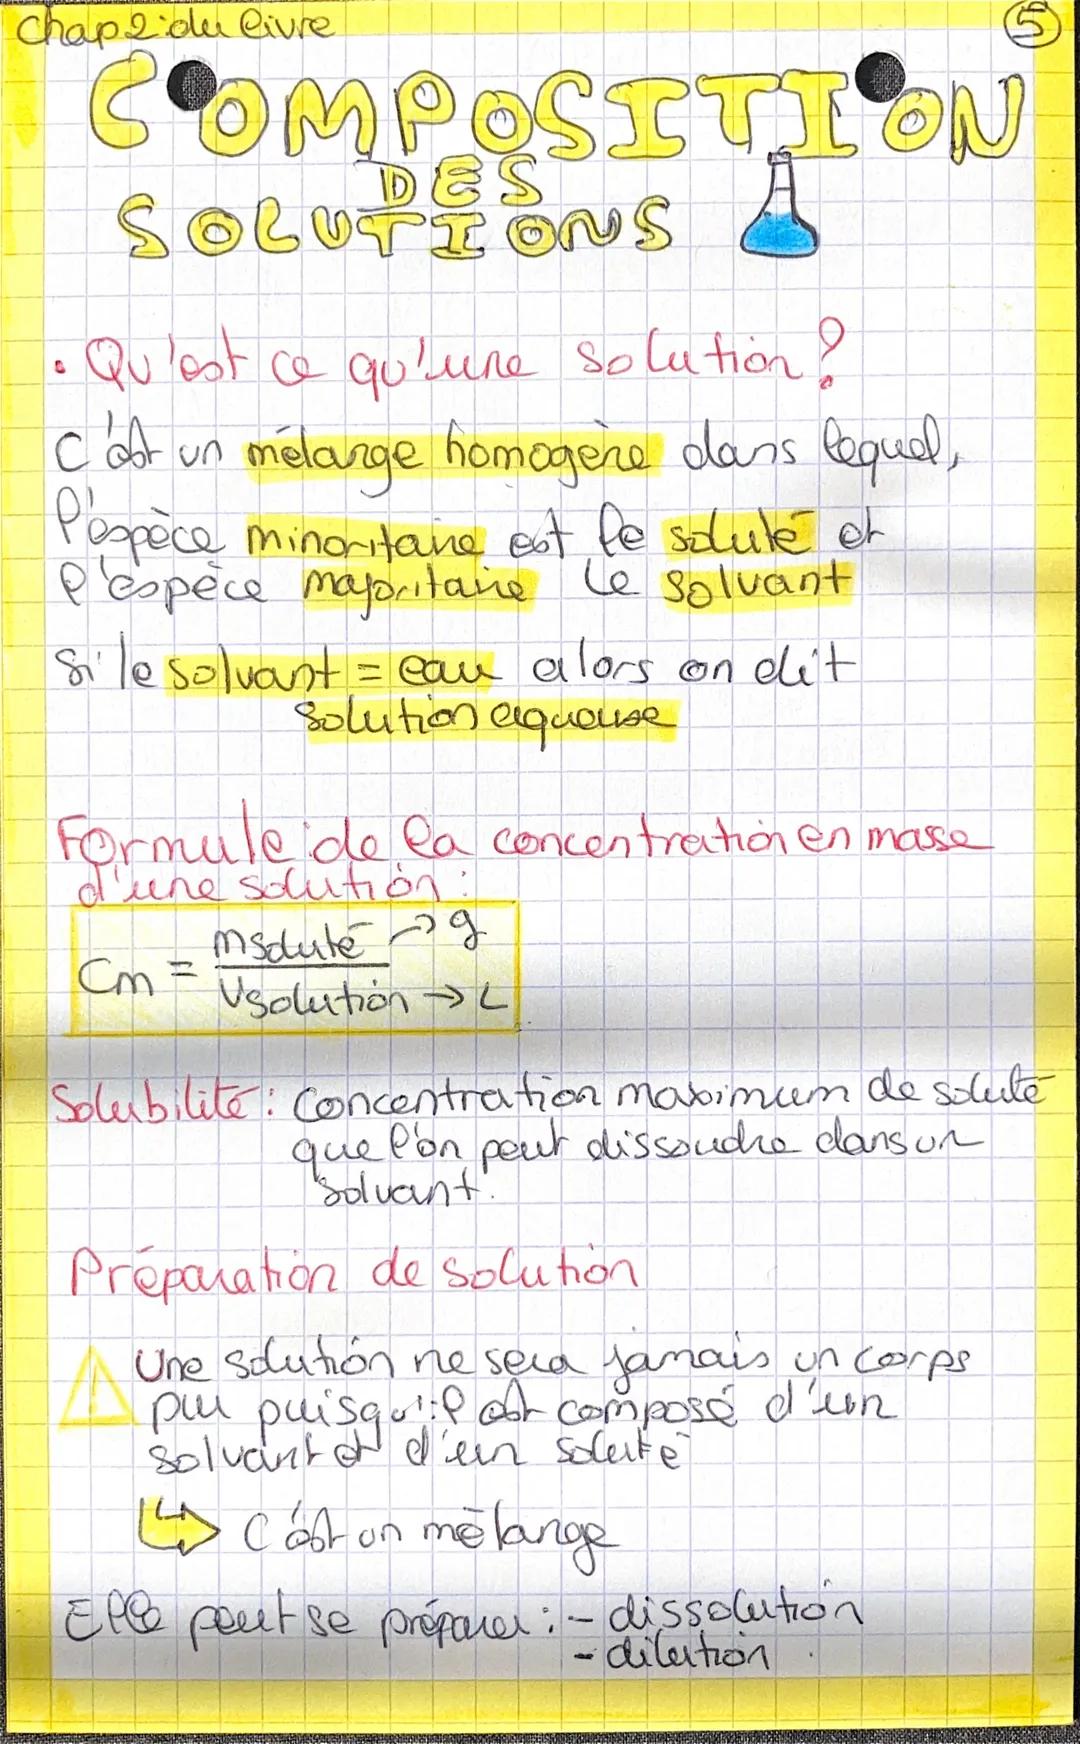 Chap 2 du livre
5
COMPOSITION
DES
SOLUTIONS
• Qu'est ce qu'une solution ?
C'est un mélange homogène dans lequel,
l'espèce minoritaire est le soluté et
l'espèce majoritaire le solvant
Si le solvant = eau alors on dit
solution aqueuse
Formule de la concentration en masse
d'une solution :
Cm = msoluté → g
Vsolution → L
Solubilité : Concentration maximum de soluté
que l'on peut dissoudre dans un
solvant.
Préparation de solution
! Une solution ne sera jamais un corps
pur puisqu'il est composé d'un
solvant et d'un soluté
C'est un mélange
Elle peut se préparer : - dissolution
- dilution